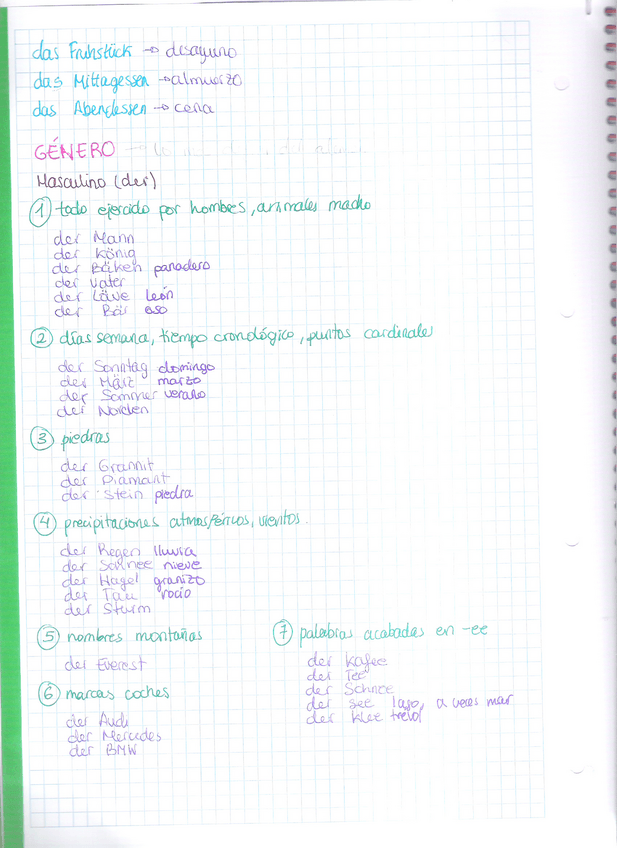 das Fruhstück → desayuno
das Mittagessen → almuerzo
das Abendessen → cena
GÉNERO →
Masculino (der)
1 todo ejercido por hombres, animales macho
der Mann
der König
der Bäken panadero
der Vater
der Löwe león
der Bär oso
2 días semana, tiempo cronológico, puntos cardinales
der Sonntag domingo
der März marzo
der Sommer verano
der Norden
3 piedras
der Grannit
der Diamant
der Stein piedra
4 precipitaciones atmosféricos, vientos.
der Regen lluvia
der Schnee nieve
der Hagel granizo
der Tau rocío
der Sturm
5 nombres montañas
der Everest
6 marcas coches
der Audi
der Mercedes
der BMW
7 palabras acabadas en -ee
der Kafee
der Tee
der Schnee
der see lago, a veces mar
der klee trebol